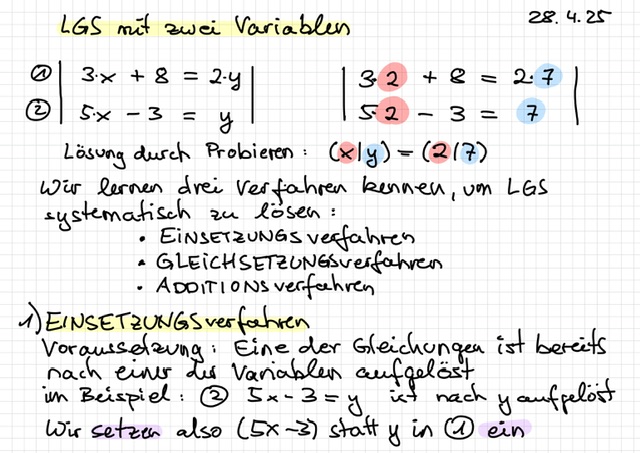 LGS mit zwei Variablen 28.4.25
① | 3·x + 8 = 2·y | | 3·2 + 8 = 2·7 |
② | 5·x − 3 = y | | 5·2 − 3 = 7 |
Lösung durch Probieren: (x|y) = (2|7)
Wir lernen drei Verfahren kennen, um LGS
systematisch zu lösen:
• EINSETZUNGSverfahren
• GLEICHSETZUNGSverfahren
• ADDITIONSverfahren
1) EINSETZUNGSverfahren
Voraussetzung: Eine der Gleichungen ist bereits
nach einer der Variablen aufgelöst
im Beispiel: ② 5x − 3 = y ist nach y aufgelöst
Wir setzen also (5x − 3) statt y in ① ein